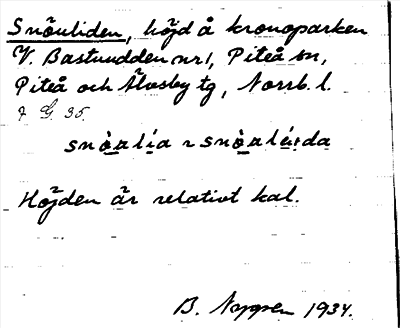 Snöuliden, höjd å kronoparken
V. Bastuudden nr 1, Piteå sn,
Piteå och Älvsby tg, Norrb. l.
7 G 35.
snòalía ~ snòaléıda
Höjden är relativt kal.
B. Nygren 1934.